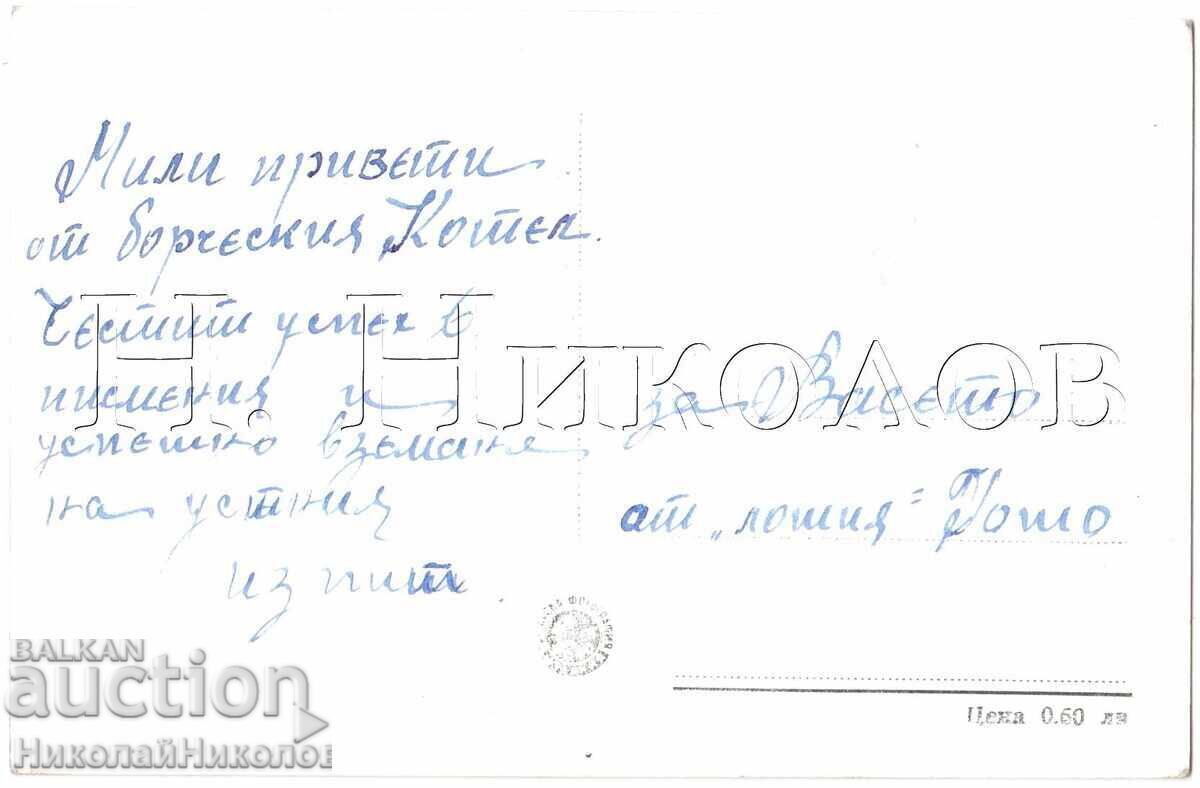 Мили привети
от борческия Котел.
Честит успех в
писмения и
успешно вземане
на устния
изпит.
за Васето
от „лошия" Гошо
Цена 0.60 лв
Н. Николов
BALKAN
auction
НиколайНиколов